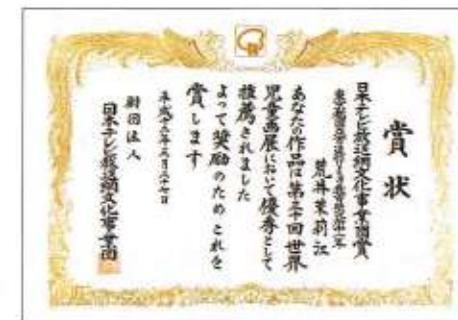 賞状
日本テレビ放送網文化事業団賞
荒井茉莉江
あなたの作品は第三十回世界
児童画展において優秀として
推薦されました
よって奨励のためこれを
賞します
財団法人
日本テレビ放送網文化事業団